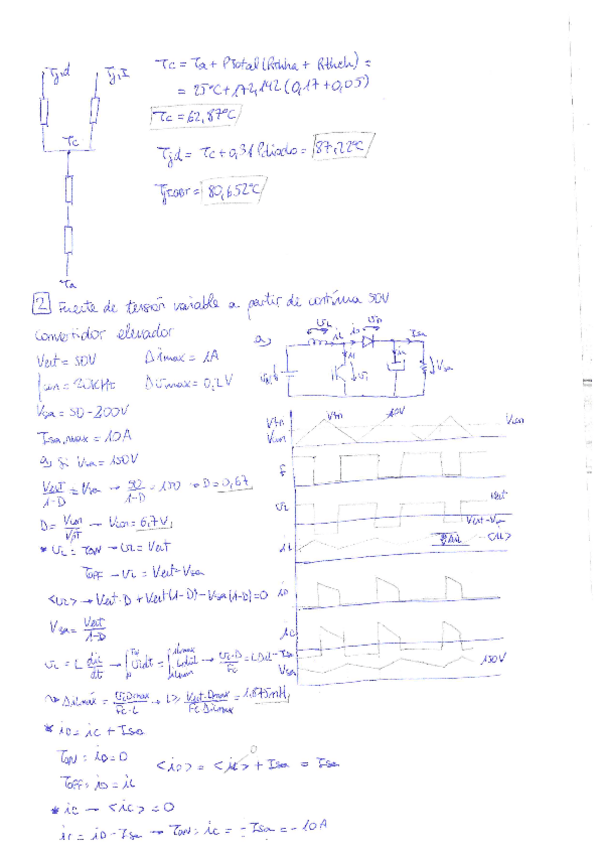 Tj,d Tj,I
Tc = Ta + PTotal (Rthha + Rthch) =
= 25ºC + 172,142 (0,17 + 0,05)
Tc = 62,87ºC
Tc
Tjd = Tc + 0,31 Pdiodo = 87,22ºC
TjIGBT = 80,652ºC
Ta
2 Fuente de tensión variable a partir de continua 50V
Convertidor elevador
Vent = 50V Δilmax = 1A
fcon = 20KHz Δvmax = 0,2V
Vsa = 50-200V
Isa,max = 10A
a) Si Vsa = 150V
Vent/1-D = Vsa → 50/1-D = 150 → D = 0,67
D = Vcon/Vpt → Vcon = 6,7V
* VL = TON → VL = Vent
TOFF → VL = Vent - Vsa
<VL> → Vent·D + Vent(1-D) - Vsa(1-D) = 0
Vsa = Vent/1-D
VL = L diL/dt
→ VL·D/Fc = L ΔiL
L ≥ Vent·Dmax/Fc Δilmax = 1,875mH
* iD = ic + Isa
TON: iD = 0
TOFF: iD = iL
<iD> = <ic> + Isa = Isa
0
* ic → <ic> = 0
ic = iD - Isa → TON: ic = -Isa = -10A
a)
VL iL iD Isa
Vsa
Vtri
Vcon
Vtri 10V Vcon
VL
Vent
Vent-Vsa
iL
ΔiL <iL>
iD
-Isa
Vsa
150V